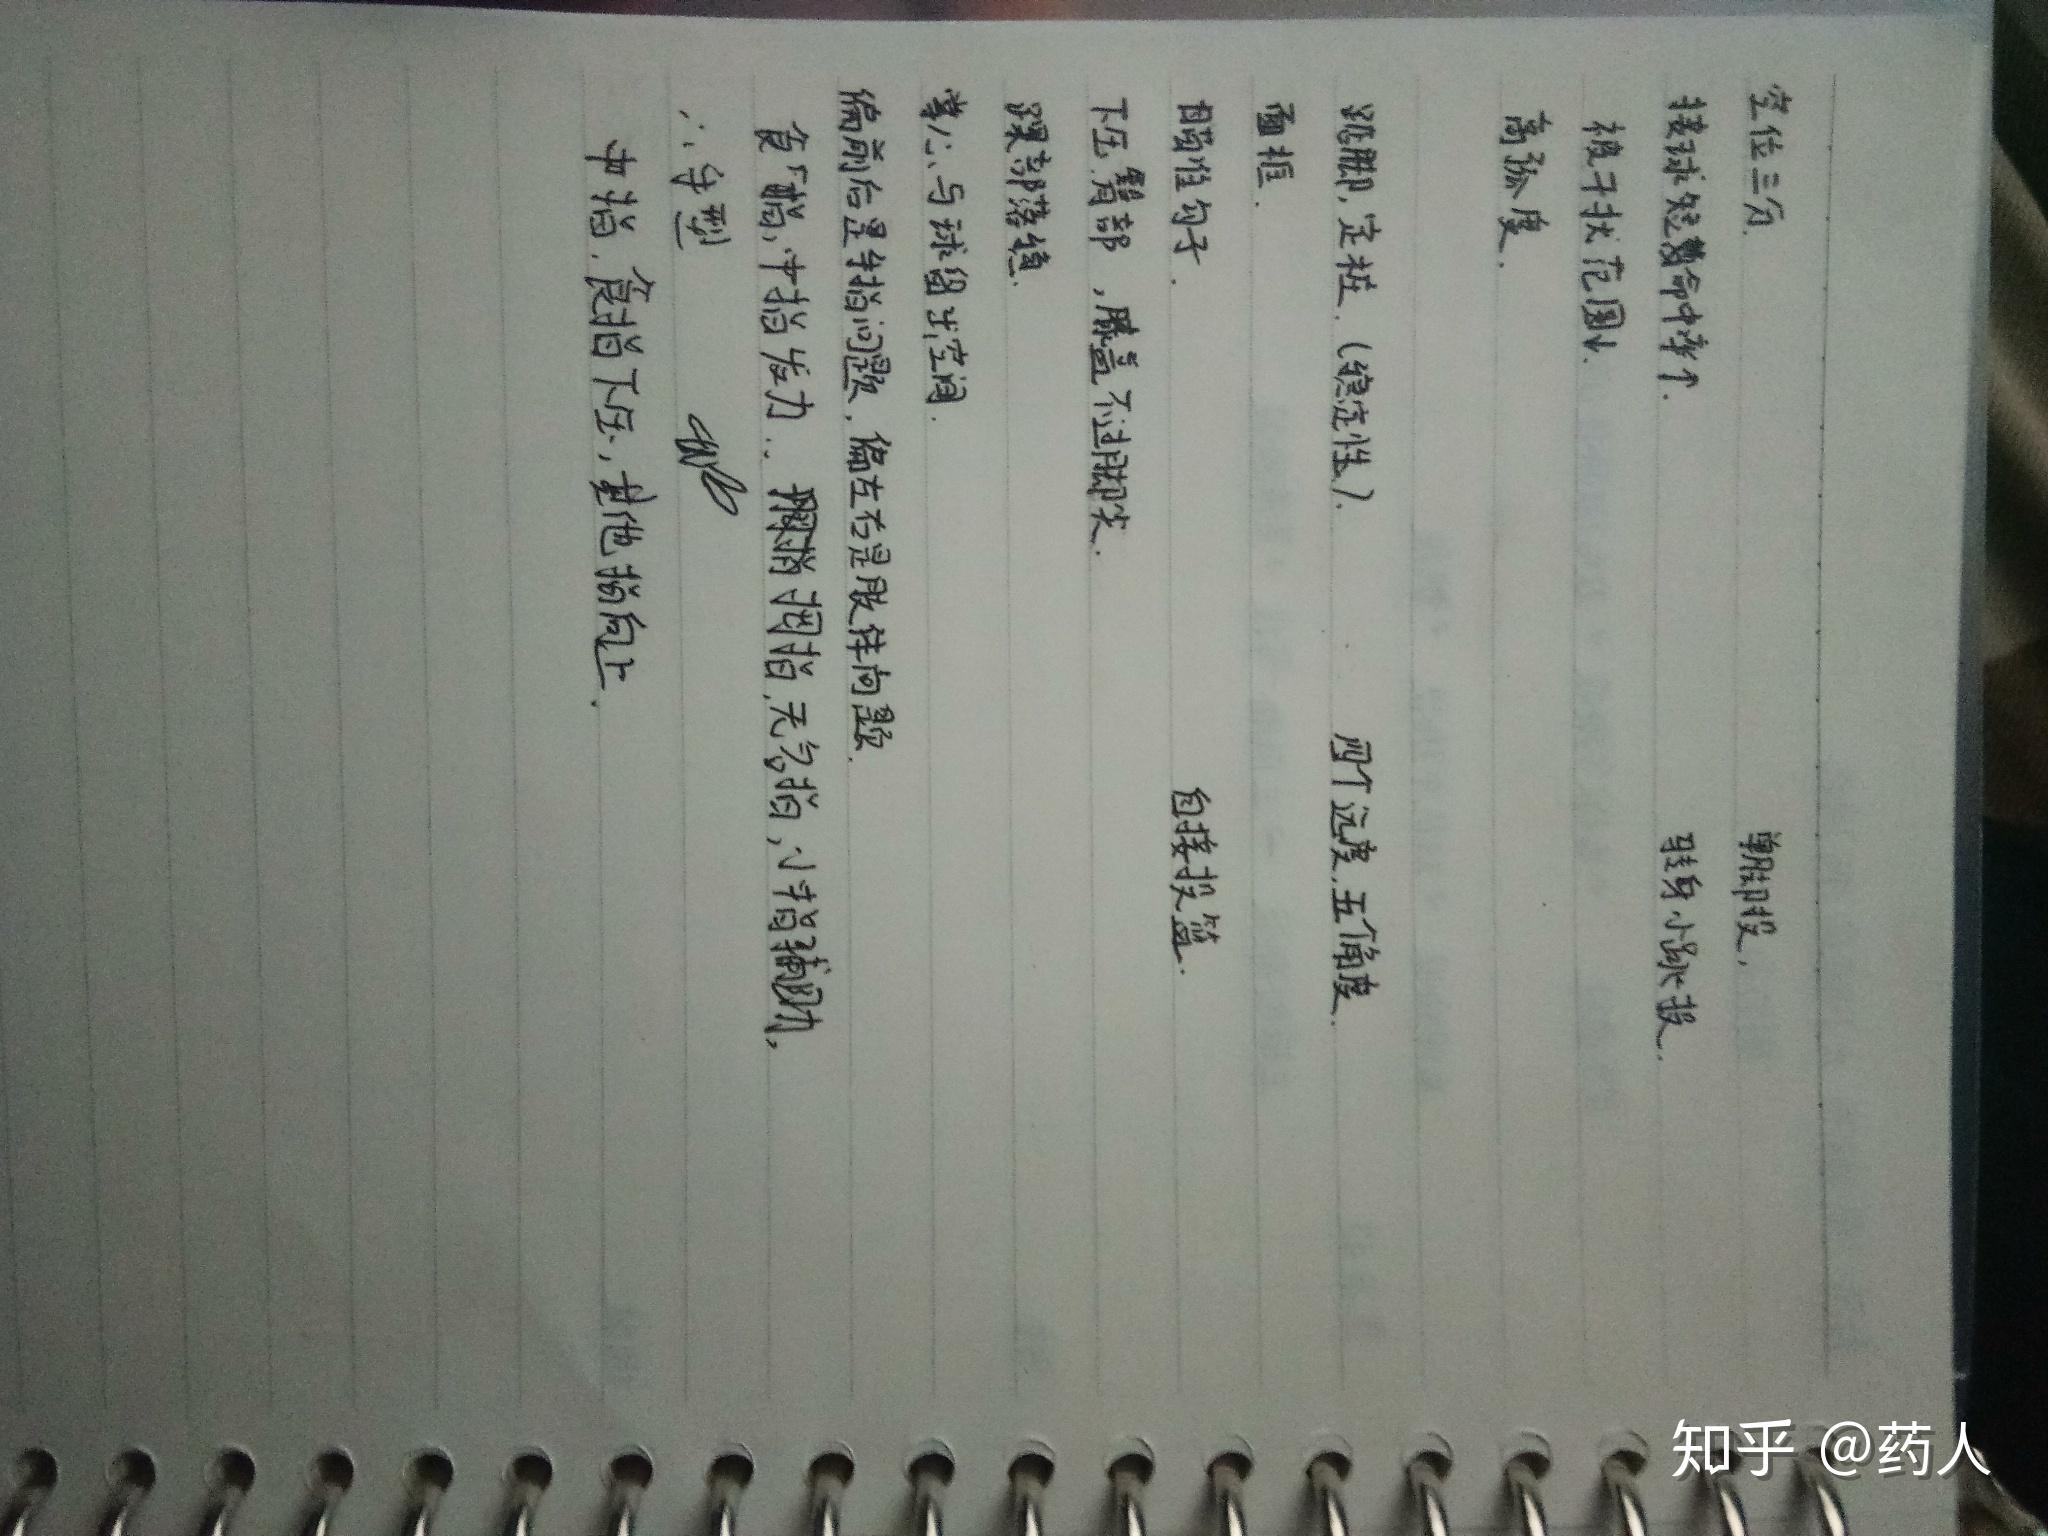 空位三分. 单脚投,
接球短暂命中率↑. 转身小跳投.
被干扰范围↓.
高弧度.
踮脚,定桩.(稳定性). 四个远度,五个角度.
面框.
瞄准勾子. 自接投篮.
下压臀部,膝盖不过脚尖.
踝部落稳.
掌心与球留出空间.
偏前后是手指问题,偏左右是肢体问题.
食指,中指发力.. 拇指无名指,小指辅助,
∴手型
中指.食指下压,其他指向上.
知乎 @药人